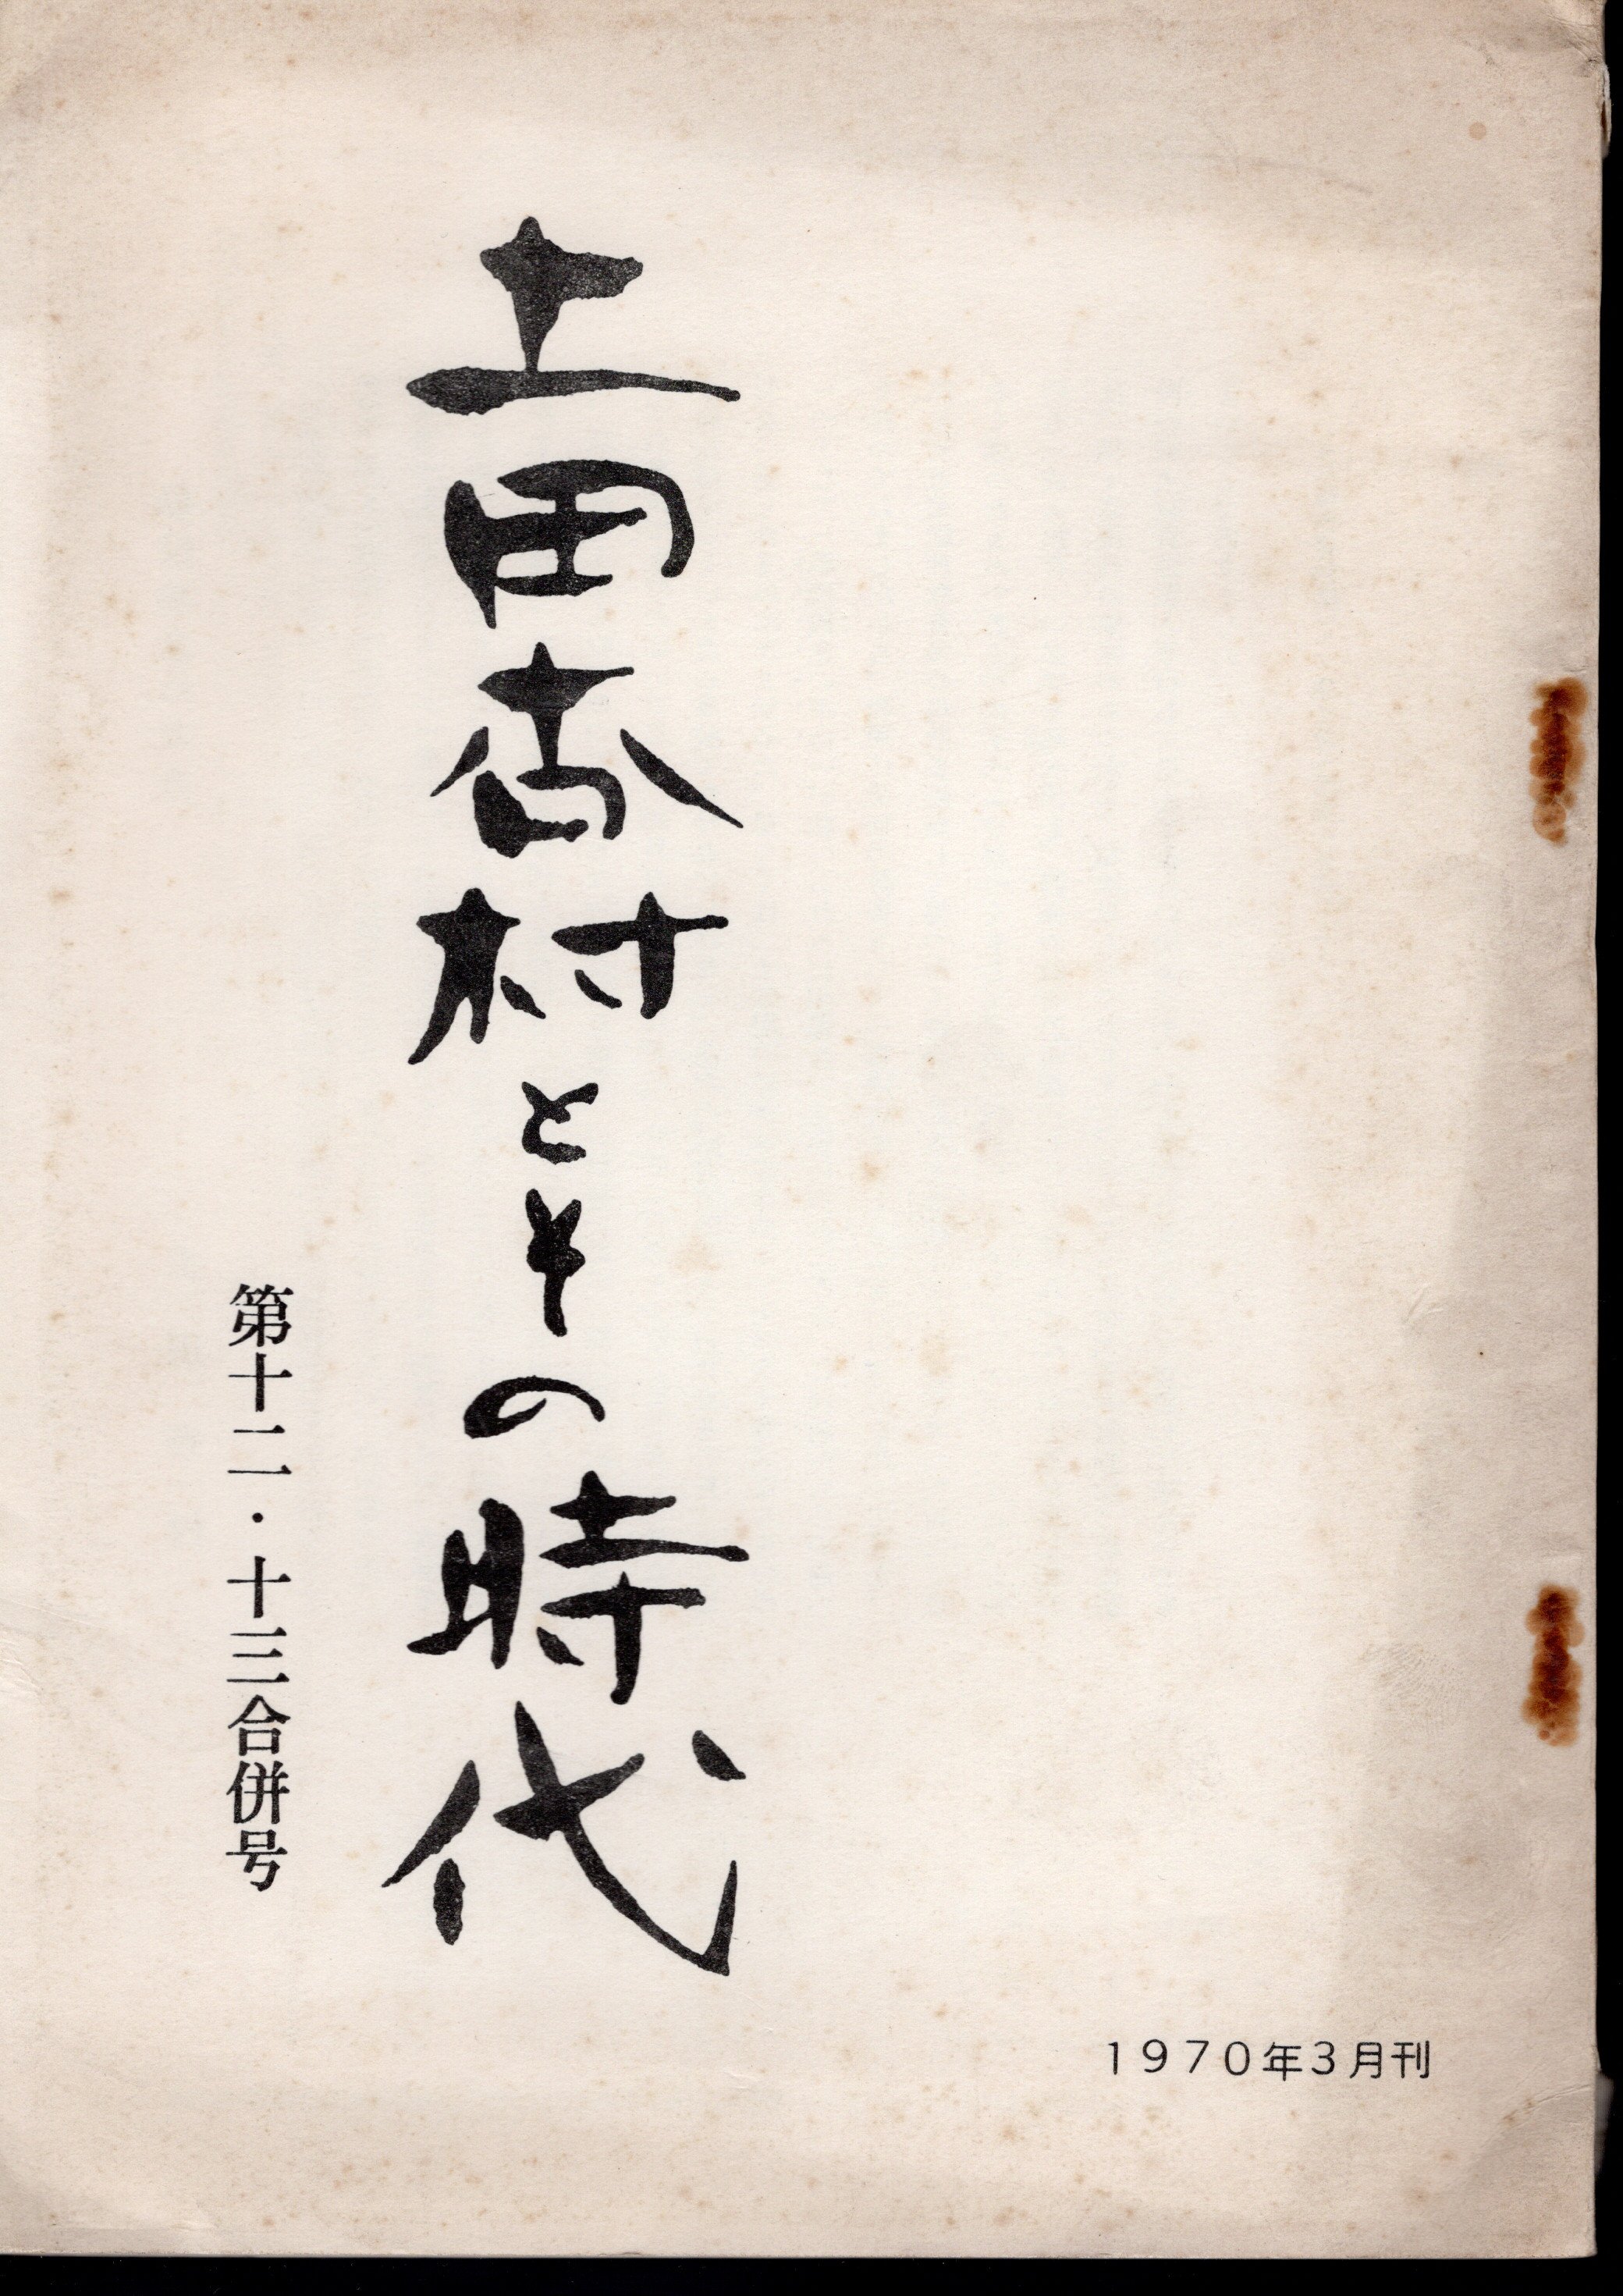 土田杏村とその時代
第十二・十三合併号
1970年3月刊